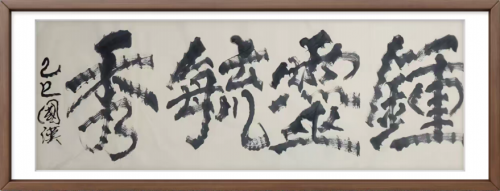 鍾靈毓秀
乙巳國漢